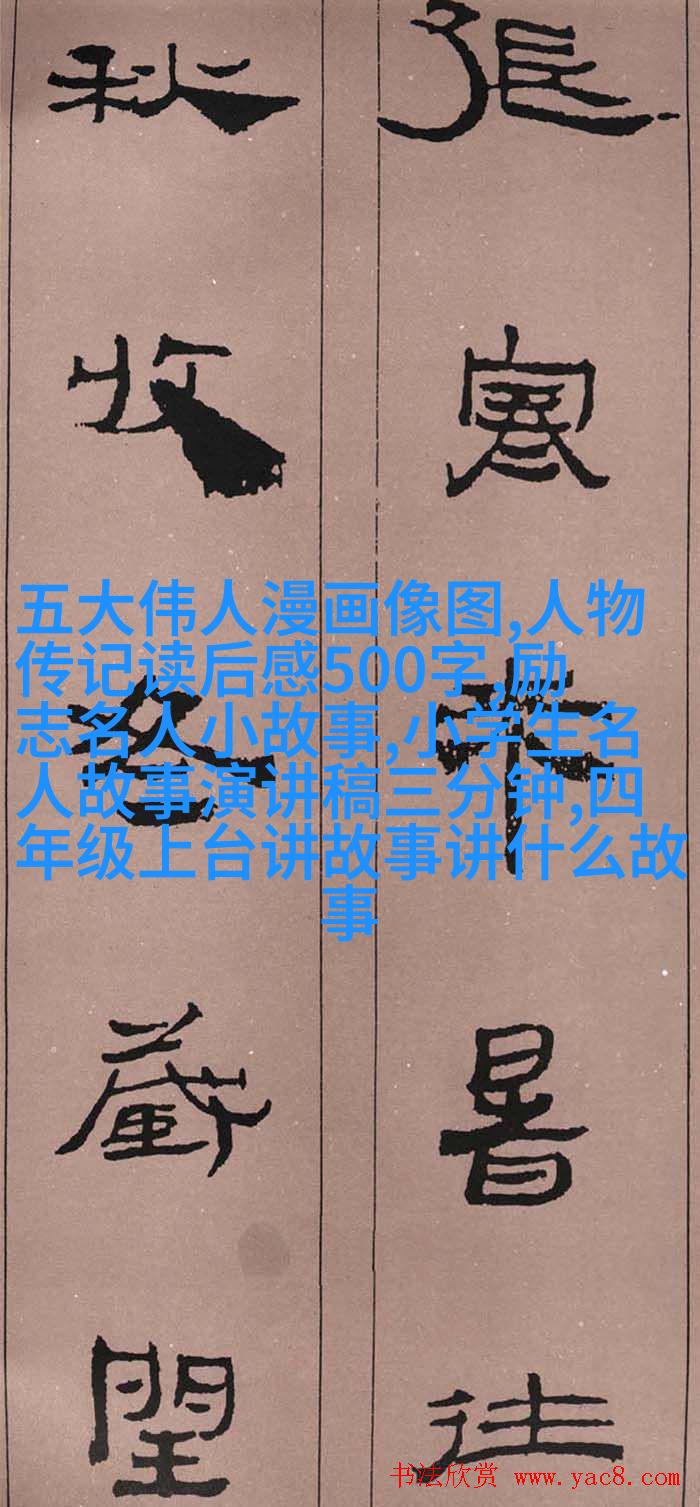 張寒來暑往
秋收冬藏閏
五大伟人漫画像图,人物
传记读后感500字,励
志名人小故事,小学生名
人故事演讲稿三分钟,四
年级上台讲故事讲什么故
事
书法欣赏 www.yac8.com